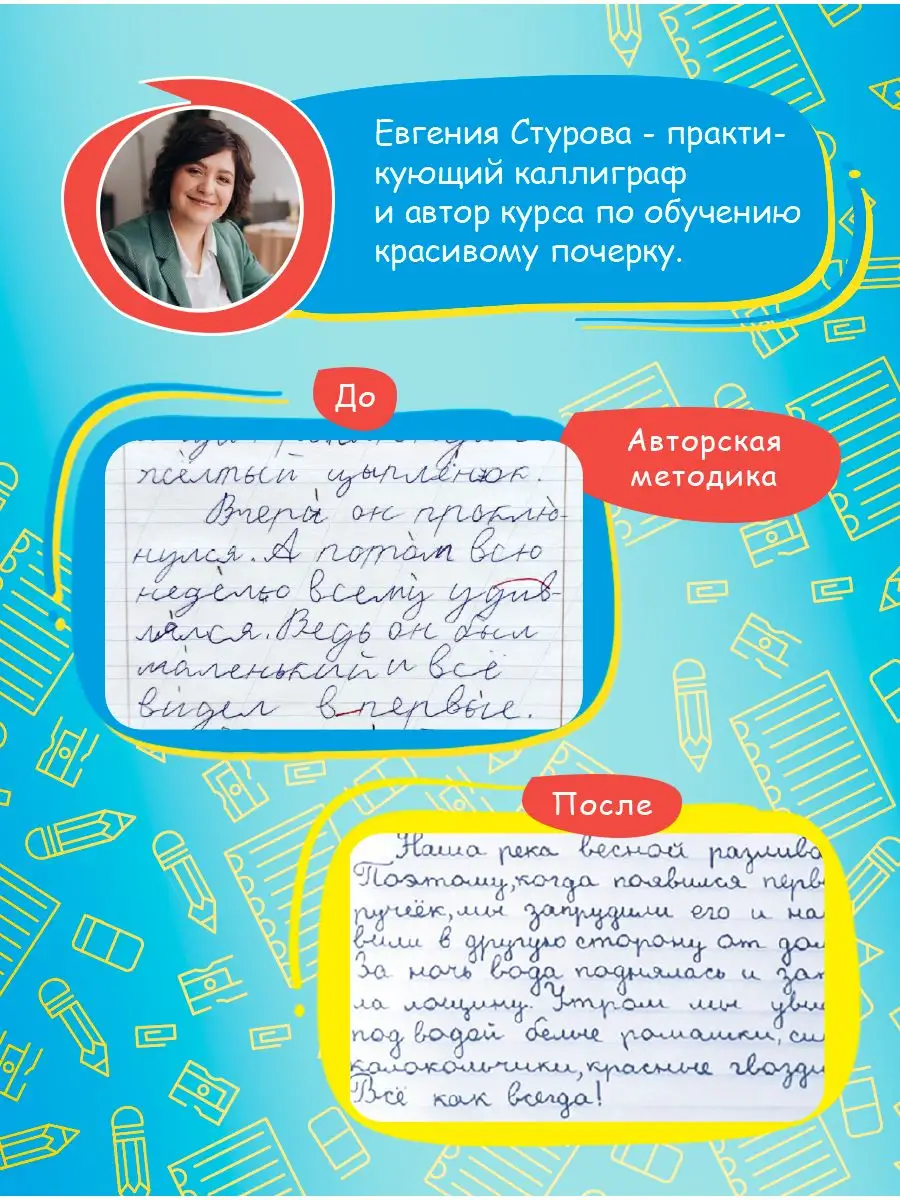 Евгения Стурова - практи-
кующий каллиграф
и автор курса по обучению
красивому почерку.
До
Авторская
методика
жёлтый цыплёнок.
Вчера он проклю-
нулся. А потом всю
неделю всему удив-
лялся. Ведь он был
маленький и всё
видел впервые.
После
Наша река весной разлива
Поэтому, когда появился перв
ручеёк, мы запрудили его и на
вили в другую сторону от дом
За ночь вода поднялась и зат
ла лощину. Утром мы уви
под водой белые ромашки, си
колокольчики, красные гвозди
Всё как всегда!